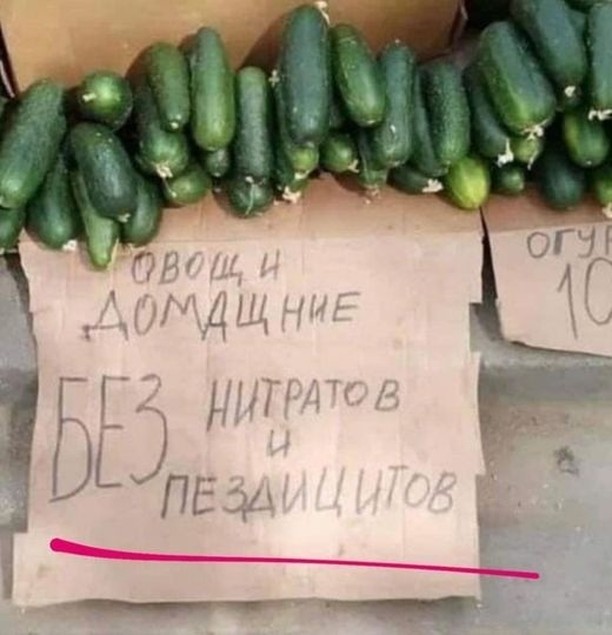 ОВОЩИ
ДОМАЩНИЕ
БЕЗ НИТРАТОВ
И
ПЕЗДИЦИТОВ
ОГУР
10